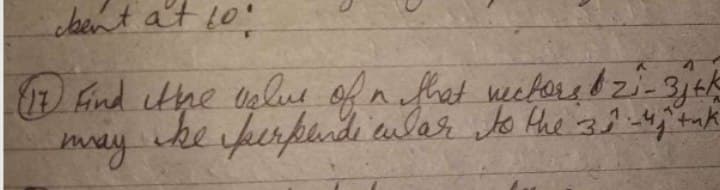 bent at 60°
(17) Find the value of n that vectors 2î-3ĵ+k̂
may be perpendicular to the 3î-4ĵ+nk̂